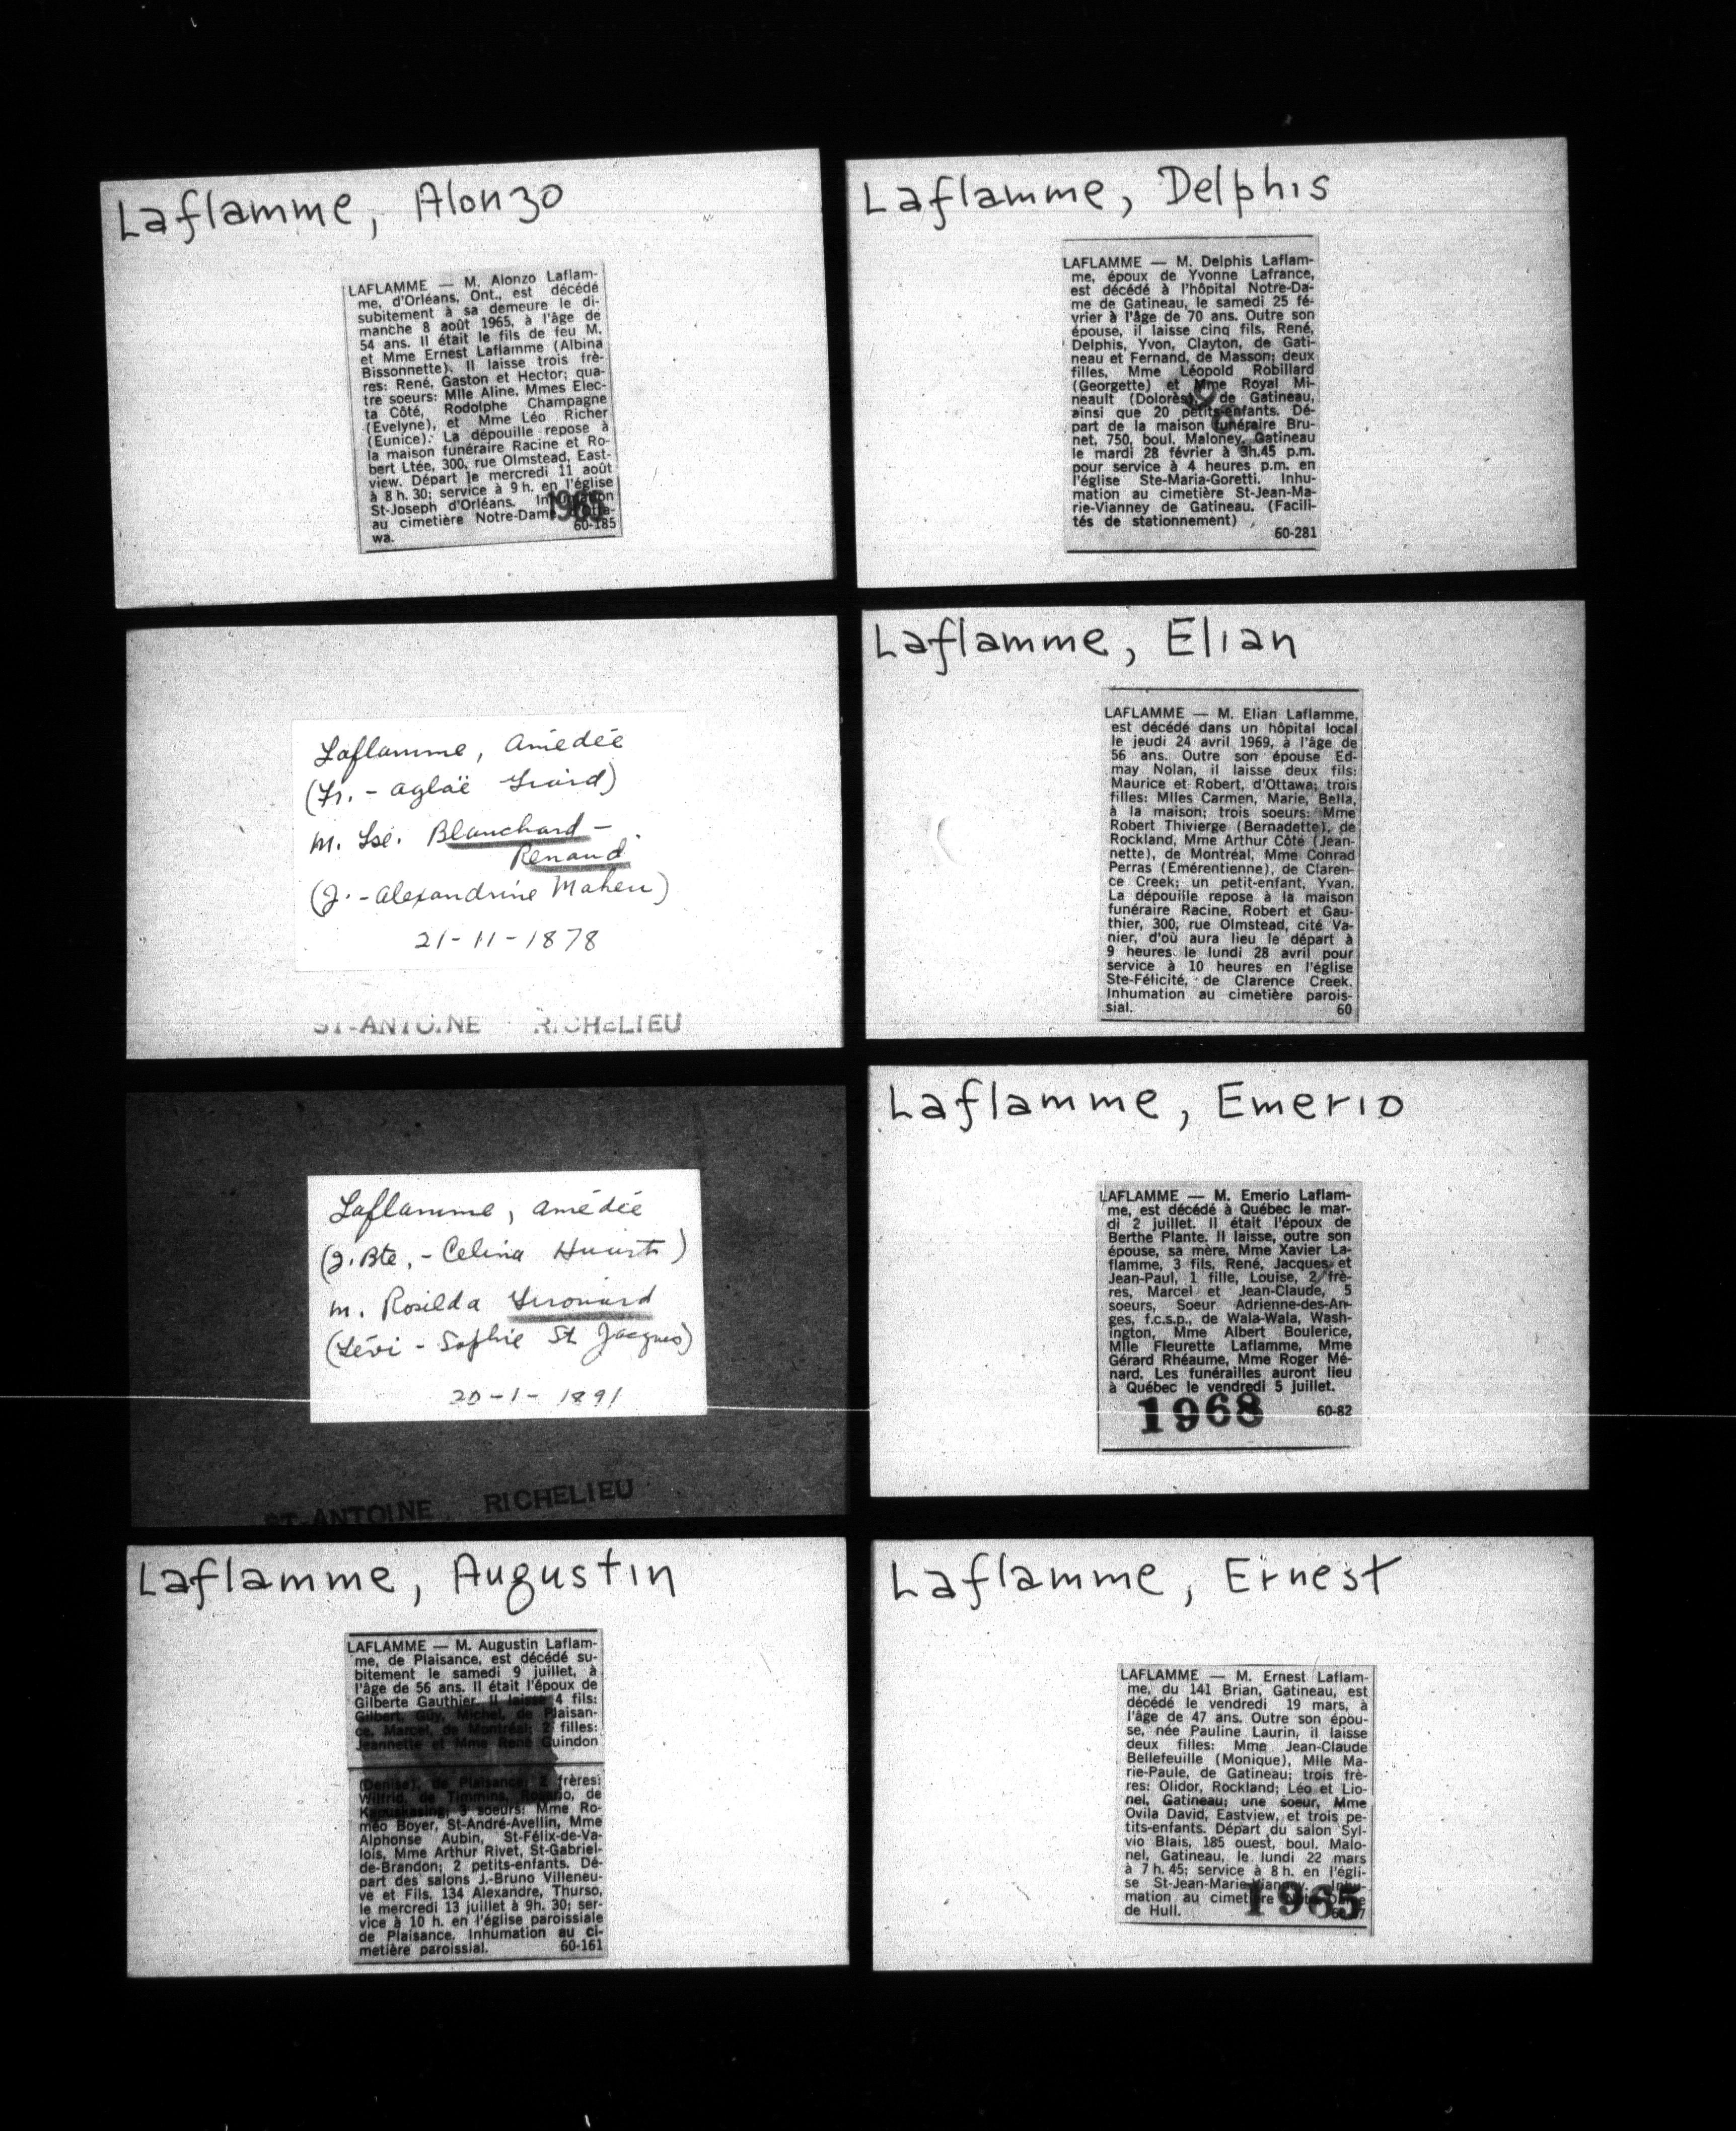 Laflamme, Alonzo
LAFLAMME — M. Alonzo Laflam-
me, d'Orléans, Ont., est décédé
subitement à sa demeure le di-
manche 8 août 1965, à l'âge de
54 ans. Il était le fils de feu M.
et Mme Ernest Laflamme (Albina
Bissonnette). Il laisse trois frè-
res: René, Gaston et Hector; qua-
tre soeurs: Mlle Aline, Mmes Elec-
ta Côté, Rodolphe Champagne
(Evelyne), et Mme Léo Richer
(Eunice). La dépouille repose à
la maison funéraire Racine et Ro-
bert Ltée, 300, rue Olmstead, East-
view. Départ le mercredi 11 août
à 8 h. 30; service à 9 h. en l'église
St-Joseph d'Orléans. Inhumation
au cimetière Notre-Dame
wa. 60-185
1965
Laflamme, Amédée
(Fr. - Aglaë
m. Blanchard -
Renaud
(J. - Alexandrine Maheu)
21-11-1878
ST-ANTOINE RICHELIEU
Laflamme, Amédée
(J. Bte, - Celina
m. Rosilda
(Lévi - Sophie St Jacques)
20-1-1891
ST-ANTOINE RICHELIEU
Laflamme, Augustin
LAFLAMME — M. Augustin Laflam-
me, de Plaisance, est décédé su-
bitement le samedi 9 juillet, à
l'âge de 56 ans. Il était l'époux de
Gilberte Gauthier. Il laisse 4 fils:
Gilbert, Guy, Michel, de Plaisan-
ce, Marcel, de Montréal; 2 filles:
Jeannette et Mme René Guindon
(Denise), de Plaisance; 2 frères:
Wilfrid, de Timmins, Rosario, de
Kapuskasing; 3 soeurs: Mme Ro-
méo Boyer, St-André-Avellin, Mme
Alphonse Aubin, St-Félix-de-Va-
lois, Mme Arthur Rivet, St-Gabriel-
de-Brandon; 2 petits-enfants. Dé-
part des salons J.-Bruno Villeneu-
ve et Fils, 134 Alexandre, Thurso,
le mercredi 13 juillet à 9h. 30; ser-
vice à 10 h. en l'église paroissiale
de Plaisance. Inhumation au ci-
metière paroissial. 60-161
Laflamme, Delphis
LAFLAMME — M. Delphis Laflam-
me, époux de Yvonne Lafrance,
est décédé à l'hôpital Notre-Da-
me de Gatineau, le samedi 25 fé-
vrier à l'âge de 70 ans. Outre son
épouse, il laisse cinq fils, René,
Delphis, Yvon, Clayton, de Gati-
neau et Fernand, de Masson; deux
filles, Mme Léopold Robillard
(Georgette) et Mme Royal Mi-
neault (Dolorès), de Gatineau,
ainsi que 20 petits-enfants. Dé-
part de la maison funéraire Bru-
net, 750, boul. Maloney, Gatineau
le mardi 28 février à 3h.45 p.m.
pour service à 4 heures p.m. en
l'église Ste-Maria-Goretti. Inhu-
mation au cimetière St-Jean-Ma-
rie-Vianney de Gatineau. (Facili-
tés de stationnement)
60-281
Laflamme, Elian
LAFLAMME — M. Elian Laflamme,
est décédé dans un hôpital local
le jeudi 24 avril 1969, à l'âge de
56 ans. Outre son épouse Ed-
may Nolan, il laisse deux fils:
Maurice et Robert, d'Ottawa; trois
filles: Mlles Carmen, Marie, Bella,
à la maison; trois soeurs: Mme
Robert Thivierge (Bernadette), de
Rockland, Mme Arthur Côté (Jean-
nette), de Montréal, Mme Conrad
Perras (Emérentienne), de Claren-
ce Creek; un petit-enfant, Yvan.
La dépouille repose à la maison
funéraire Racine, Robert et Gau-
thier, 300, rue Olmstead, cité Va-
nier, d'où aura lieu le départ à
9 heures le lundi 28 avril pour
service à 10 heures en l'église
Ste-Félicité, de Clarence Creek.
Inhumation au cimetière parois-
sial. 60
Laflamme, Emerio
LAFLAMME — M. Emerio Laflam-
me, est décédé à Québec le mar-
di 2 juillet. Il était l'époux de
Berthe Plante. Il laisse, outre son
épouse, sa mère, Mme Xavier La-
flamme, 3 fils, René, Jacques et
Jean-Paul, 1 fille, Louise, 2 frè-
res, Marcel et Jean-Claude, 5
soeurs, Soeur Adrienne-des-An-
ges, f.c.s.p., de Wala-Wala, Wash-
ington, Mme Albert Boulerice,
Mlle Fleurette Laflamme, Mme
Gérard Rhéaume, Mme Roger Mé-
nard. Les funérailles auront lieu
à Québec le vendredi 5 juillet.
1968 60-82
Laflamme, Ernest
LAFLAMME — M. Ernest Laflam-
me, du 141 Brian, Gatineau, est
décédé le vendredi 19 mars, à
l'âge de 47 ans. Outre son épou-
se, née Pauline Laurin, il laisse
deux filles: Mme Jean-Claude
Bellefeuille (Monique), Mlle Ma-
rie-Paule, de Gatineau; trois frè-
res: Olidor, Rockland; Léo et Lio-
nel, Gatineau; une soeur, Mme
Ovila David, Eastview, et trois pe-
tits-enfants. Départ du salon Syl-
vio Blais, 185 ouest, boul. Malo-
nel, Gatineau, le lundi 22 mars
à 7 h. 45; service à 8 h. en l'égli-
se St-Jean-Marie-Vianney. Inhu-
mation au cimetière Notre-Dame
de Hull.
1965